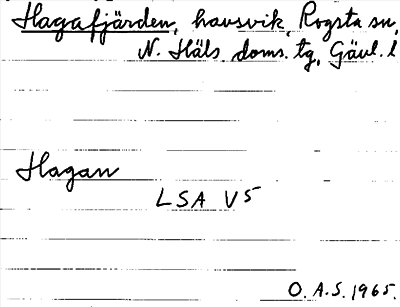 Hagafjärden, havsvik, Rogsta sn,
N. Häls. doms. tg, Gävl. l
Hagan
LSA V5
O. A.S. 1965.